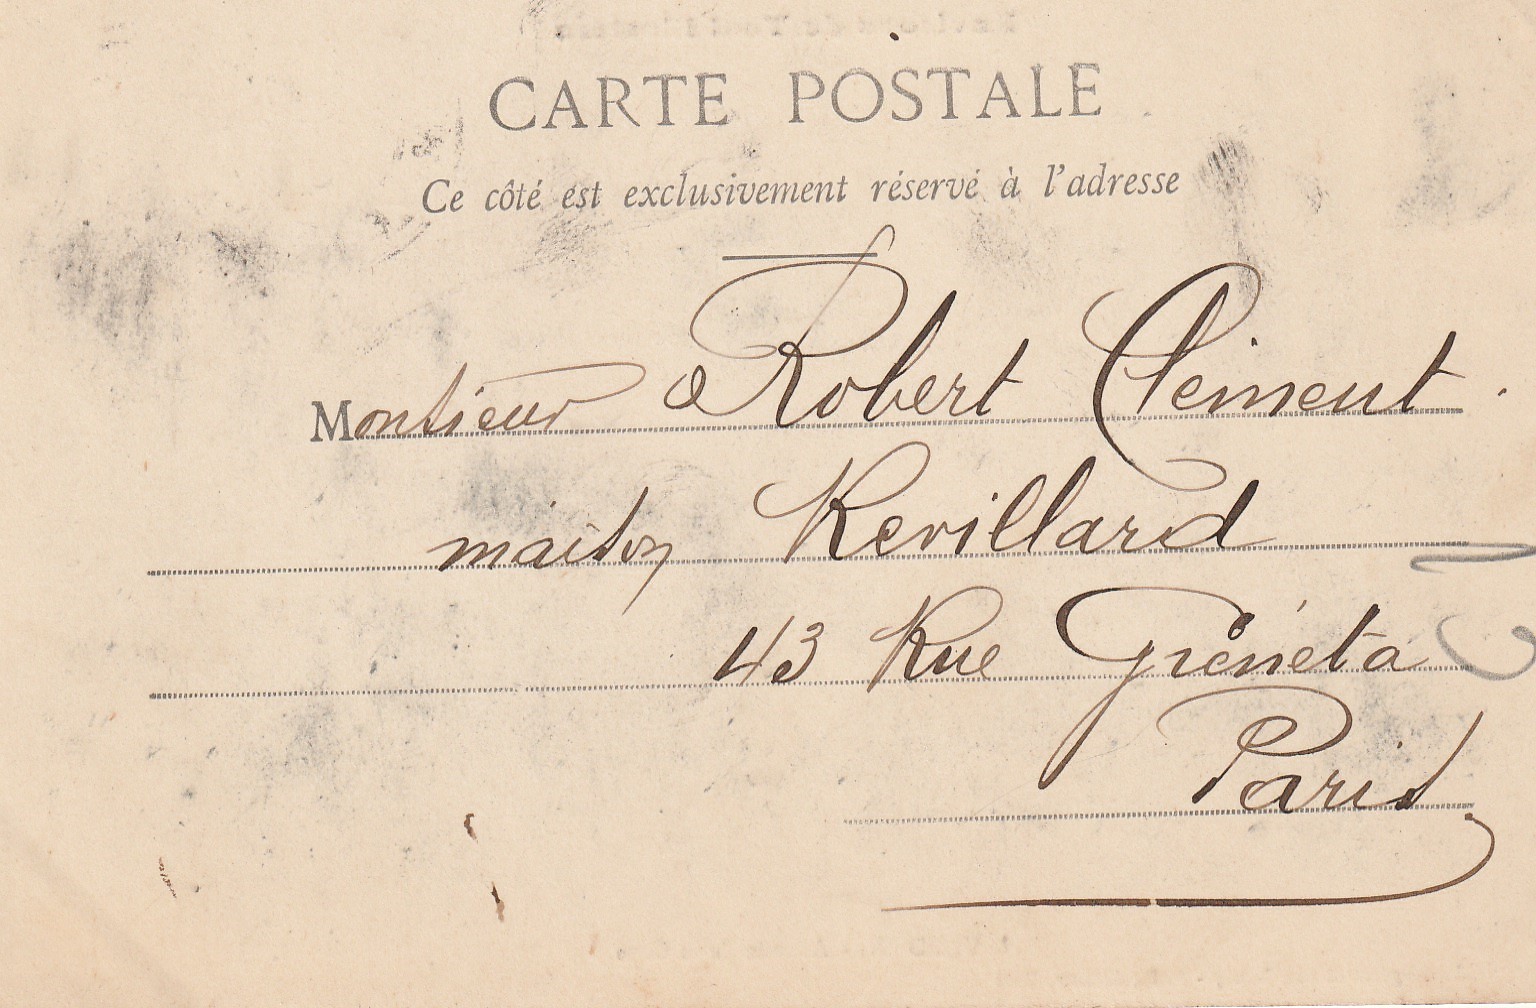 CARTE POSTALE
Ce côté est exclusivement réservé à l'adresse
Monsieur Robert Clément.
maison Revillard
43 Rue Grénéta
Paris